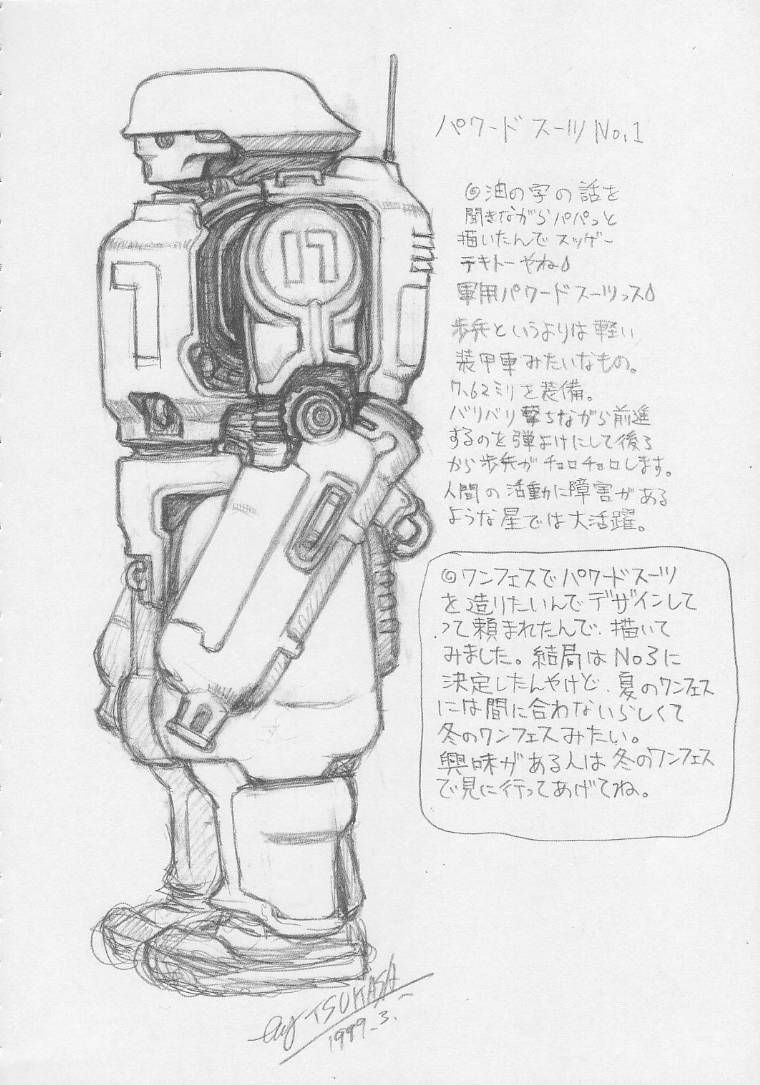 パワード スーツ No,1
◎油の字の話を
聞きながらパパっと
描いたんでスッゲー
テキトーやね♪
軍用パワードスーツっス♪
歩兵というよりは軽い
装甲車みたいなもの。
7、62ミリを装備。
バリバリ撃ちながら前進
するのを弾よけにして後ろ
から歩兵がチョロチョロします。
人間の活動に障害がある
ような星では大活躍。
◎ワンフェスでパワードスーツ
を造りたいんでデザインして
って頼まれたんで、描いて
みました。結局はNo3に
決定したんやけど、夏のワンフェス
には間に合わないらしくて
冬のワンフェスみたい。
興味がある人は冬のワンフェス
で見に行ってあげてね。
17
by TSUKASA
1999.3.